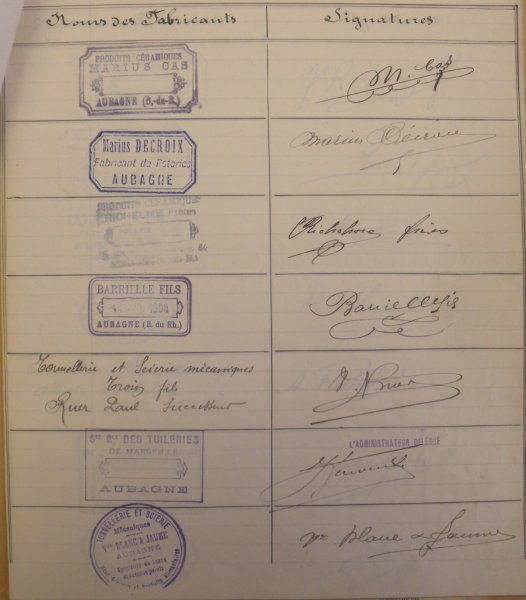 Noms des Fabricants
Signatures
PRODUITS CÉRAMIQUES
MARIUS CAS
AUBAGNE (B.-du-R.)
M. Cas
Marius DECROIX
Fabricant de Poteries
AUBAGNE
Marius Décroix
PRODUITS CÉRAMIQUES
RICHELME Frères
Richelme frères
BARRIELLE FILS
AUBAGNE (B. du Rh.)
Barrielle fils
Tonnellerie et Scierie mécaniques
Troin fils
Ruer Paul Successeur
P. Ruer
Sté Gle DES TUILERIES
DE MARSEILLE
AUBAGNE
L'ADMINISTRATEUR DÉLÉGUÉ
TONNELLERIE ET SCIERIE
Mécaniques
Vve BLANC A JAUME
AUBAGNE
Vve Blanc a Jaume